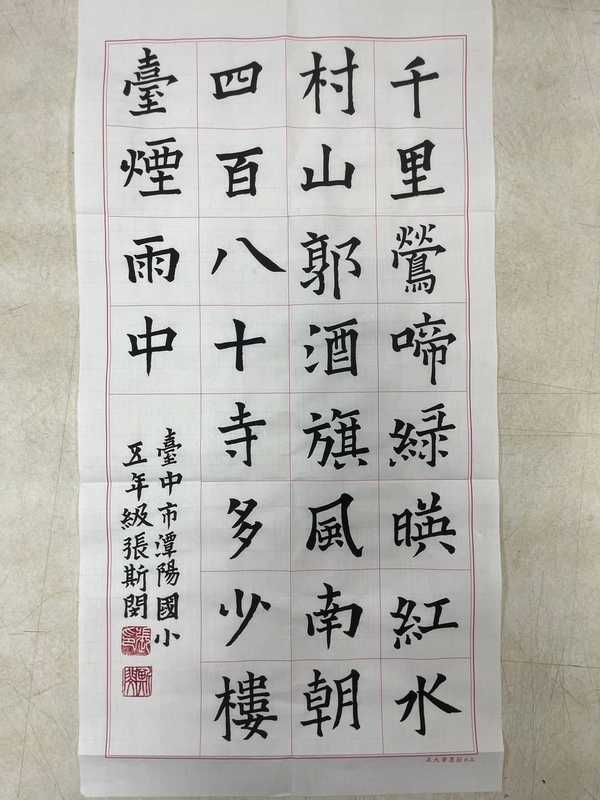 千里鶯啼綠暎紅水
村山郭酒旗風南朝
四百八十寺多少樓
臺煙雨中
臺中市潭陽國小
五年級張斯閔